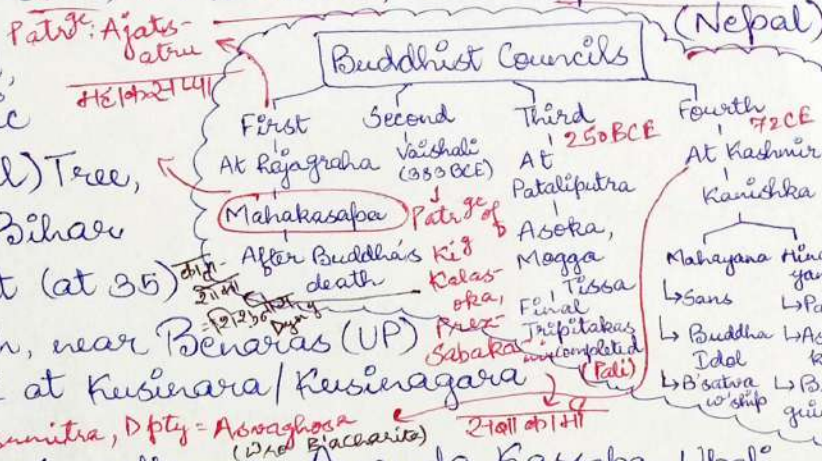 Patrge: Ajats-
atru
महाकसप्पा
(Nepal)
Buddhist Councils
First
At Rajagraha
Mahakasapa
After Buddha's
death
Second
Vaishali
(383 BCE)
Patrge of
Kig
Kalas-
oka,
Prex-
Sabaka
Third
250 BCE
At
Pataliputra
Asoka,
Mogga
Tissa
Final
Tripitakas
completed
(Pali)
Fourth
72 CE
At Kashmir
Kanishka
Mahayana
↳Sans
↳ Buddha
Idol
↳B'satva
w'ship
Hina
yan
↳Pa
↳As
k
↳B
gui
l) Tree,
Bihar
t (at 35)
n, near Benaras (UP)
at Kusinara/Kusinagara
सबाकामी
umitra, Dpty = Asvaghosa
(Wro B'acharita)